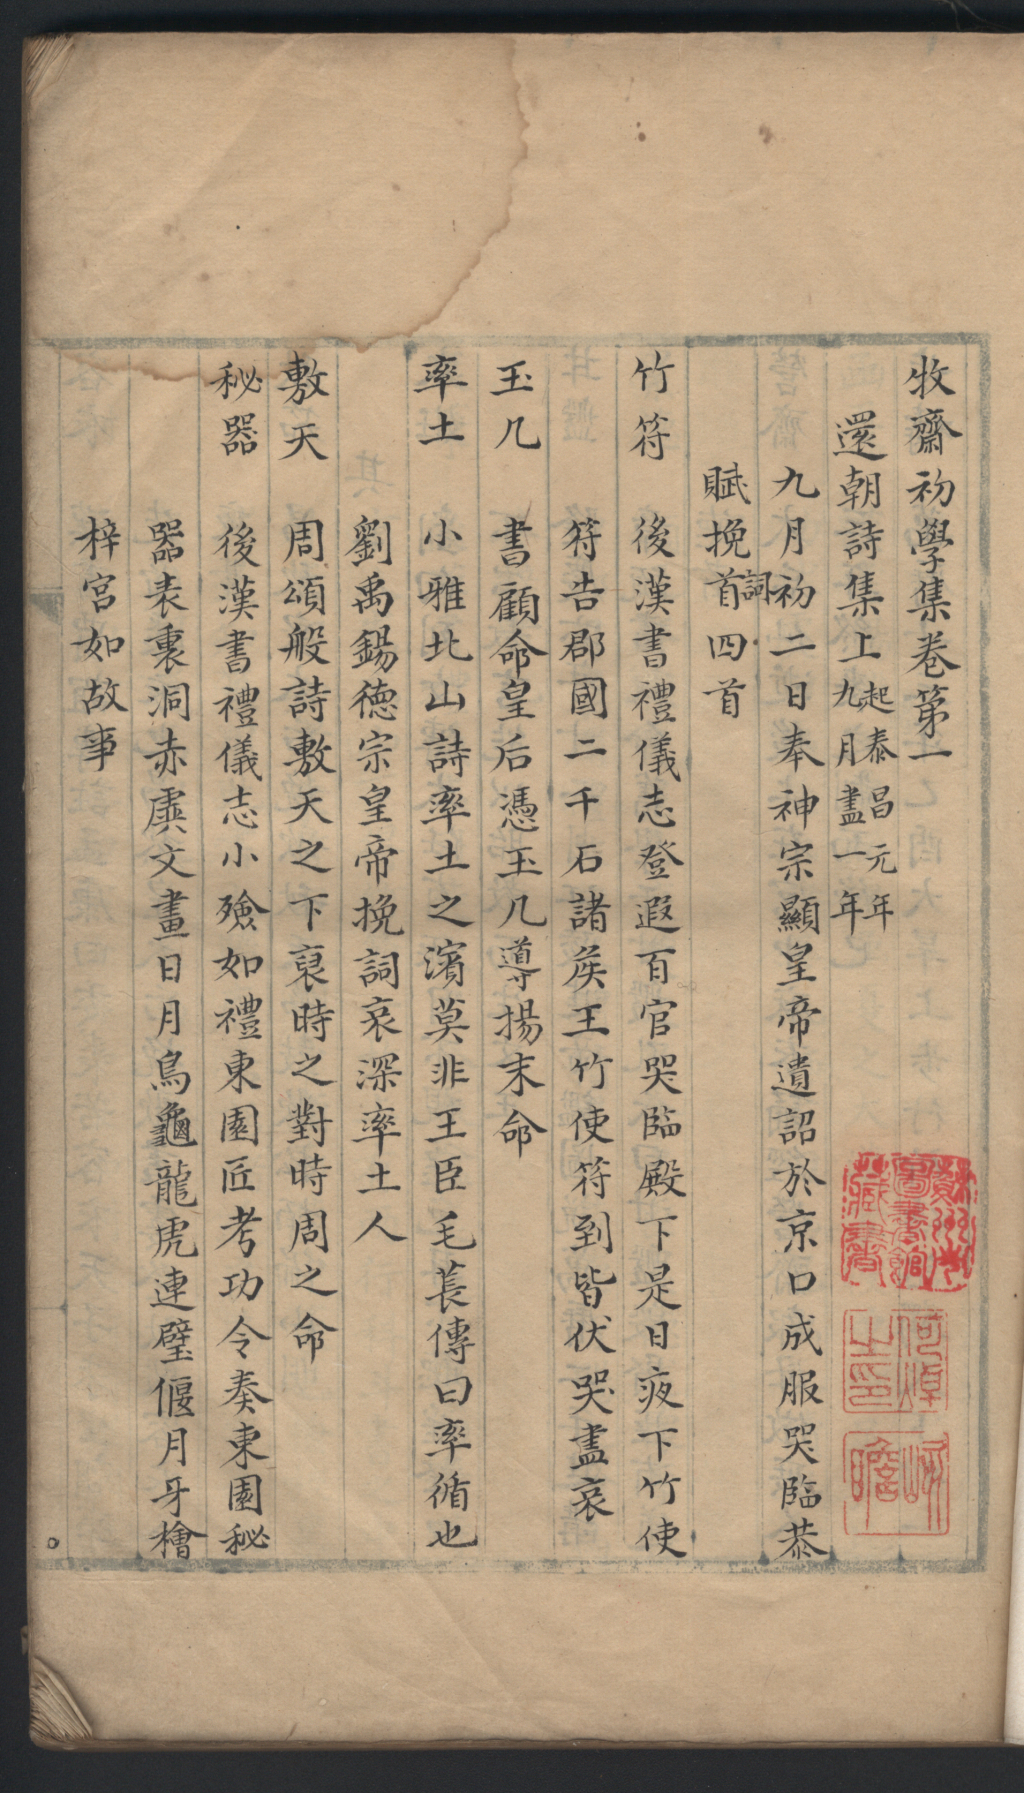 牧齋初學集卷第一
還朝詩集上起泰昌元年九月盡一年
九月初二日奉神宗顯皇帝遺詔於京口成服哭臨恭
賦挽首四首
詞
竹符 後漢書禮儀志登遐百官哭臨殿下是日夜下竹使
符告郡國二千石諸矦王竹使符到皆伏哭盡哀
玉几 書顧命皇后憑玉几導揚末命
率土 小雅北山詩率土之濱莫非王臣毛萇傳曰率循也
劉禹錫德宗皇帝挽詞哀深率土人
敷天 周頌般詩敷天之下裒時之對時周之命
秘器 後漢書禮儀志小殮如禮東園匠考功令奏東園秘
器表裏洞赤虡文畫日月鳥龜龍虎連璧偃月牙檜
梓宮如故事
蘇州市圖書館藏書
何焯之印
屺瞻